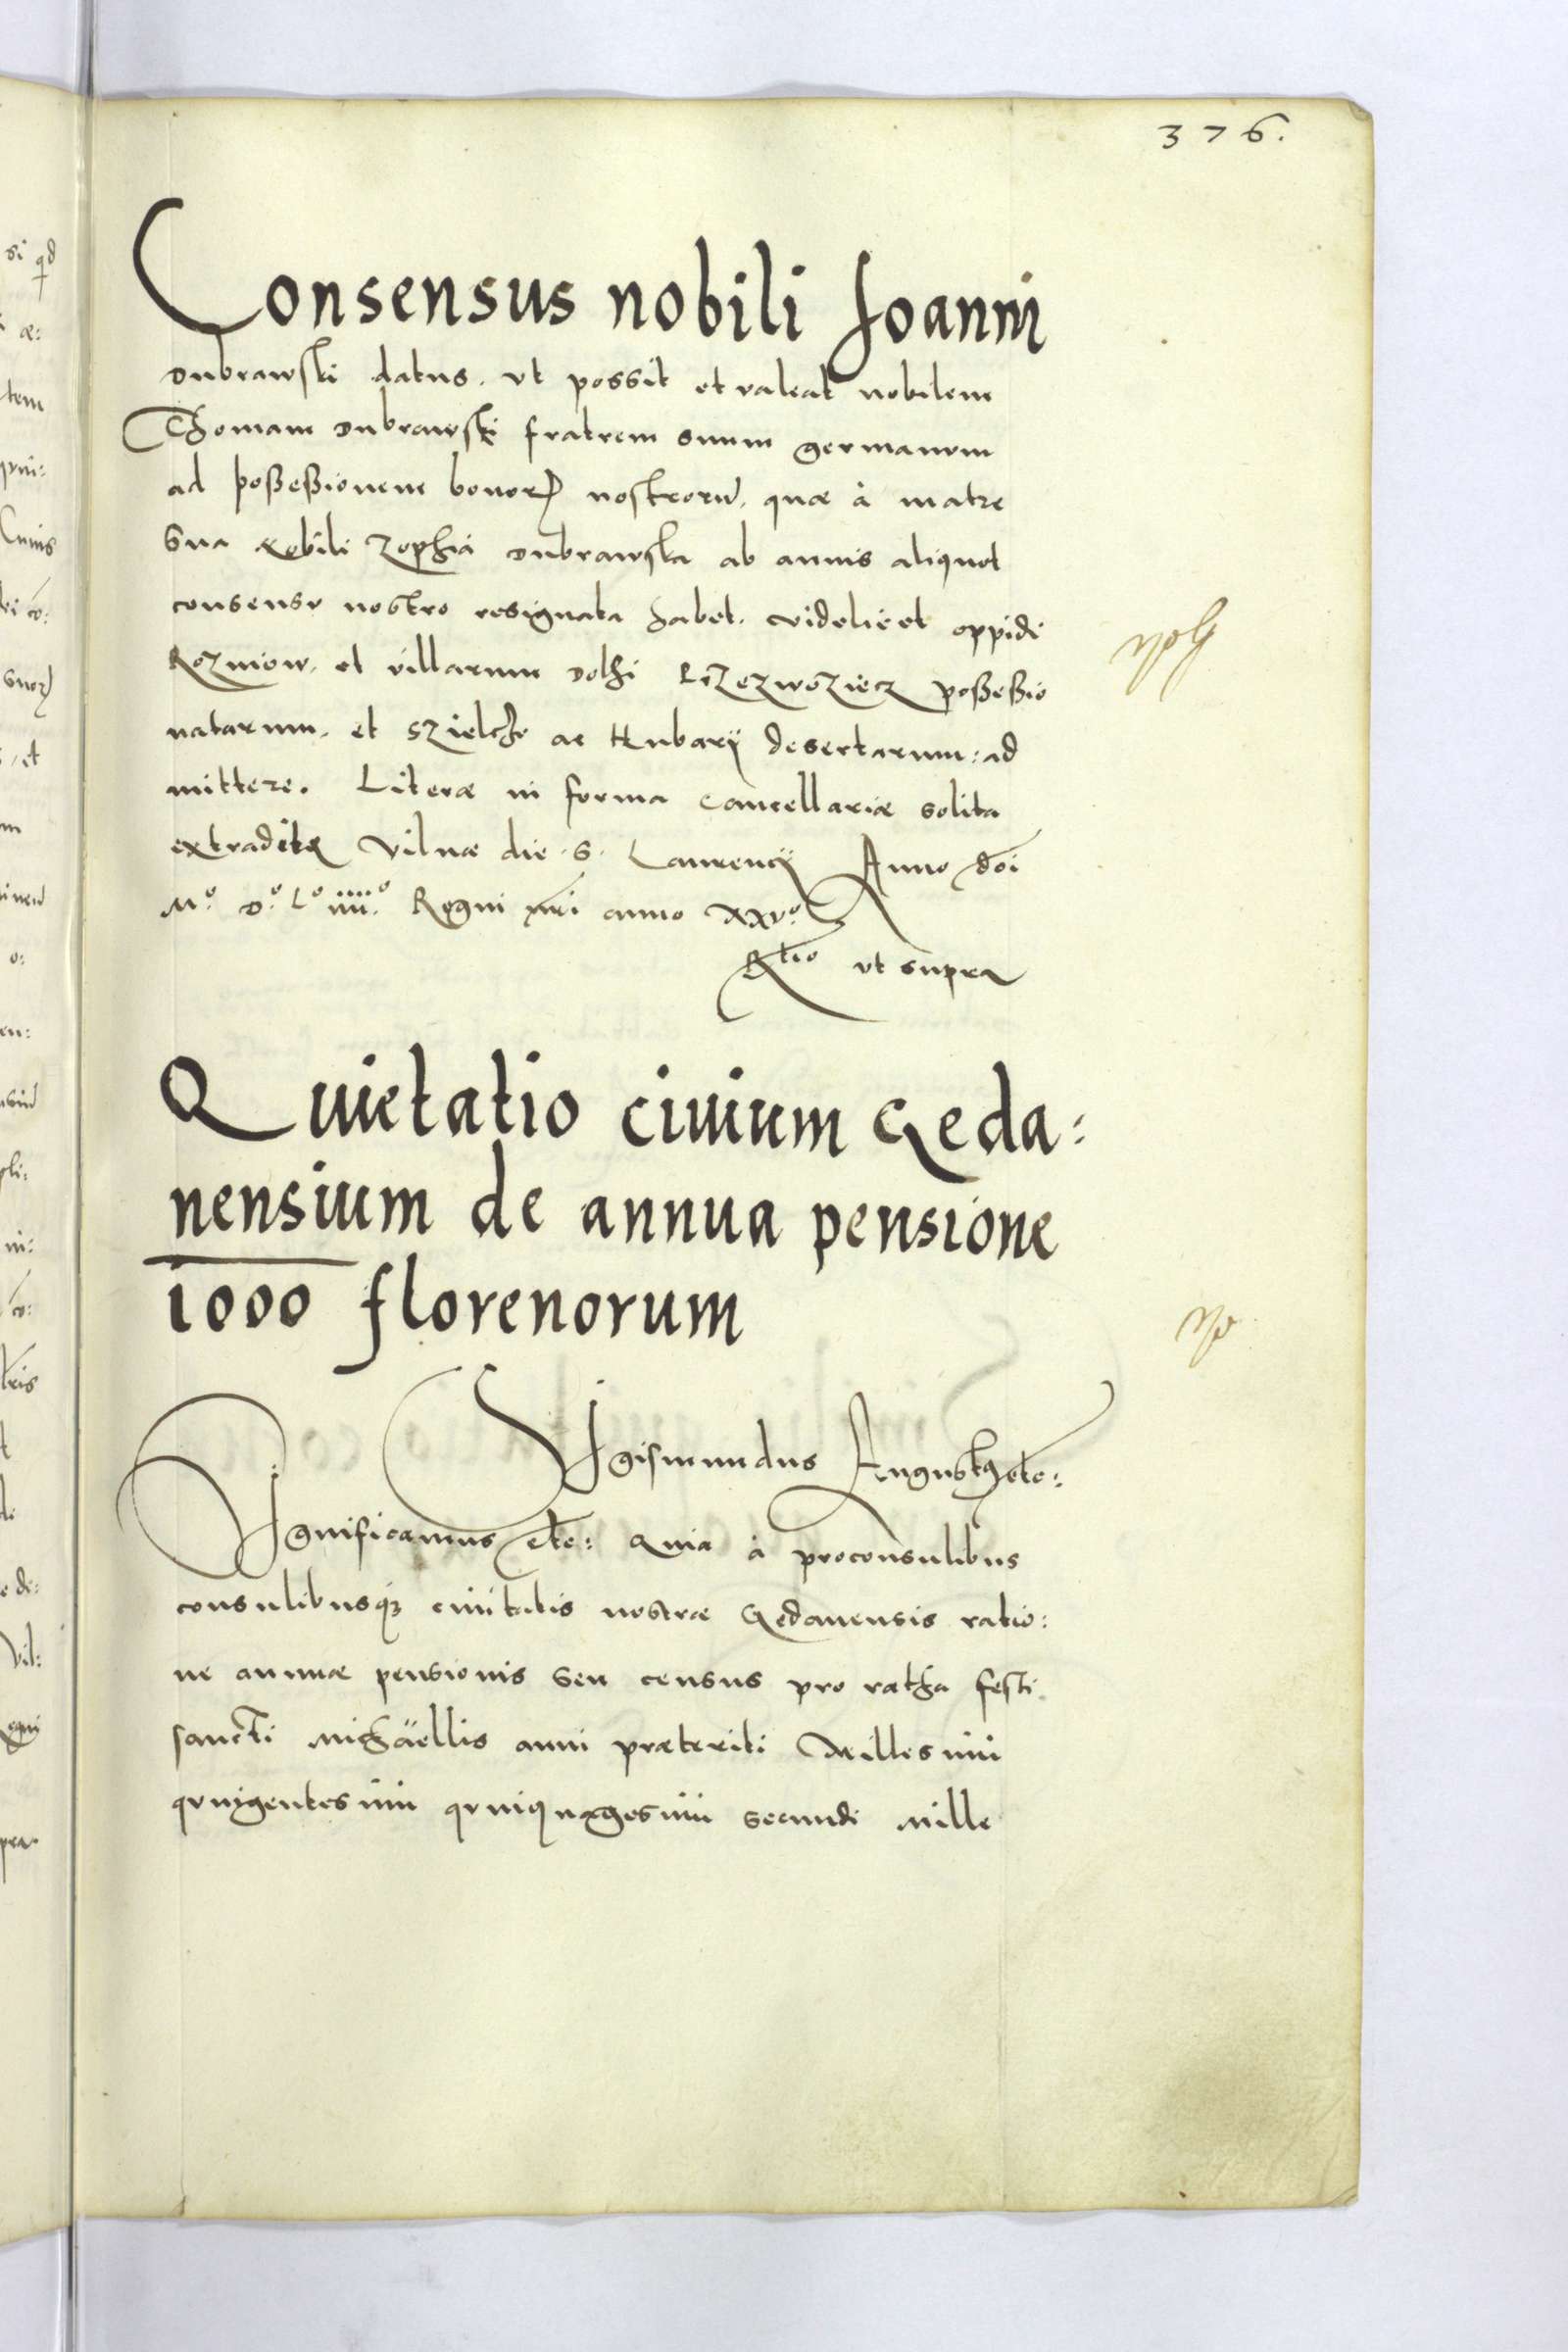 376.
Consensus nobili Joanni
Dubrawski datus. ut possit et valeat nobilem
Thomam Dubrawski fratrem suum germanum
ad poßeßionem bonoꝝ nostrorū. quæ à matre
sua nobili Zophia Dubrawska ab annis aliquot
consensu nostro resignata habet. videlicet oppidi
Rozniow. et villarum Dolhi poßeßio
natarum. et Szielche ac Hubarÿ desertarum: ad
mittere. Literæ in forma Cancellariæ solita
extraditæ Vilnæ die. S. Laurencÿ Anno dōi
Mº. Dº. Lº iiiiº. Regni nr̄i anno xxvº.
Rt̄io ut supra
Quietatio ciuium Geda:
nensium de annua pensione
1000 florenorum
Sigismundus Augustꝰ etc:
Significamus etc: Quia à proconsulibus
consulibusqꝫ ciuitatis nostræ Gedanensis ratio:
ne annuæ pensionis seu census pro ratha festi
sancti Michäellis anni præteriti Millesimi
quingentesimi quinquagesimi secundi Mille